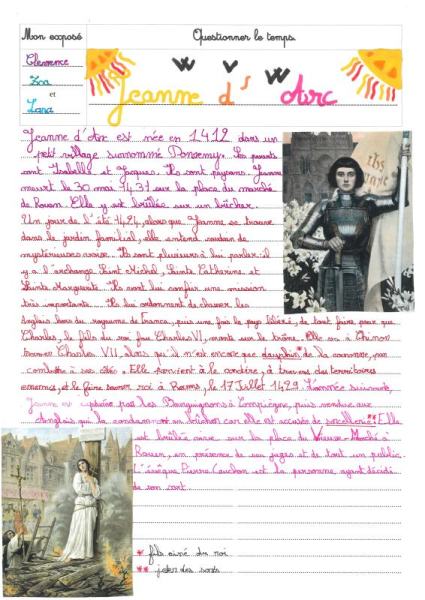 Mon exposé
Questionner le temps.
Clémence
Zoa
et
Lana
Jeanne d'Arc
Jeanne d'Arc est née en 1412 dans un
petit village surnommé Domremy. Ses parents
sont Isabelle et Jacques. Ils sont paysans. Jeanne
meurt le 30 mai 1431 sur la place du marché
de Rouen. Elle y est brûlée sur un bûcher.
Un jour de l'été 1424, alors que Jeanne se trouve
dans le jardin familial, elle entend soudain de
mystérieuses voix. Ils sont plusieurs à lui parler : il
y a l'archange Saint Michel, Sainte Catherine et
Sainte Marguerite. Ils vont lui confier une mission
très importante. Ils lui ordonnent de chasser les
Anglais hors du royaume de France, puis une fois le pays libéré, de tout faire pour que
Charles, le fils du roi fou Charles VI, monte sur le trône. Elle va à Chinon
trouver Charles VII, alors qu'il n'est encore que dauphin* de la couronne, pour
combattre à ses côtés. Elle parvient à le conduire, à travers des territoires
ennemis, et le faire sacrer roi à Reims, le 17 Juillet 1429. L'année suivante,
Jeanne est capturée par les Bourguignons à Compiègne, puis vendue aux
Anglais qui la condamnent au bûcher car elle est accusée de sorcellerie**. Elle
est brûlée vive sur la place du Vieux-Marché à
Rouen, en présence de ses juges et de tout un public.
L'évêque Pierre Cauchon est la personne ayant décidé
de son sort.
* fils aîné du roi
** jeter des sorts